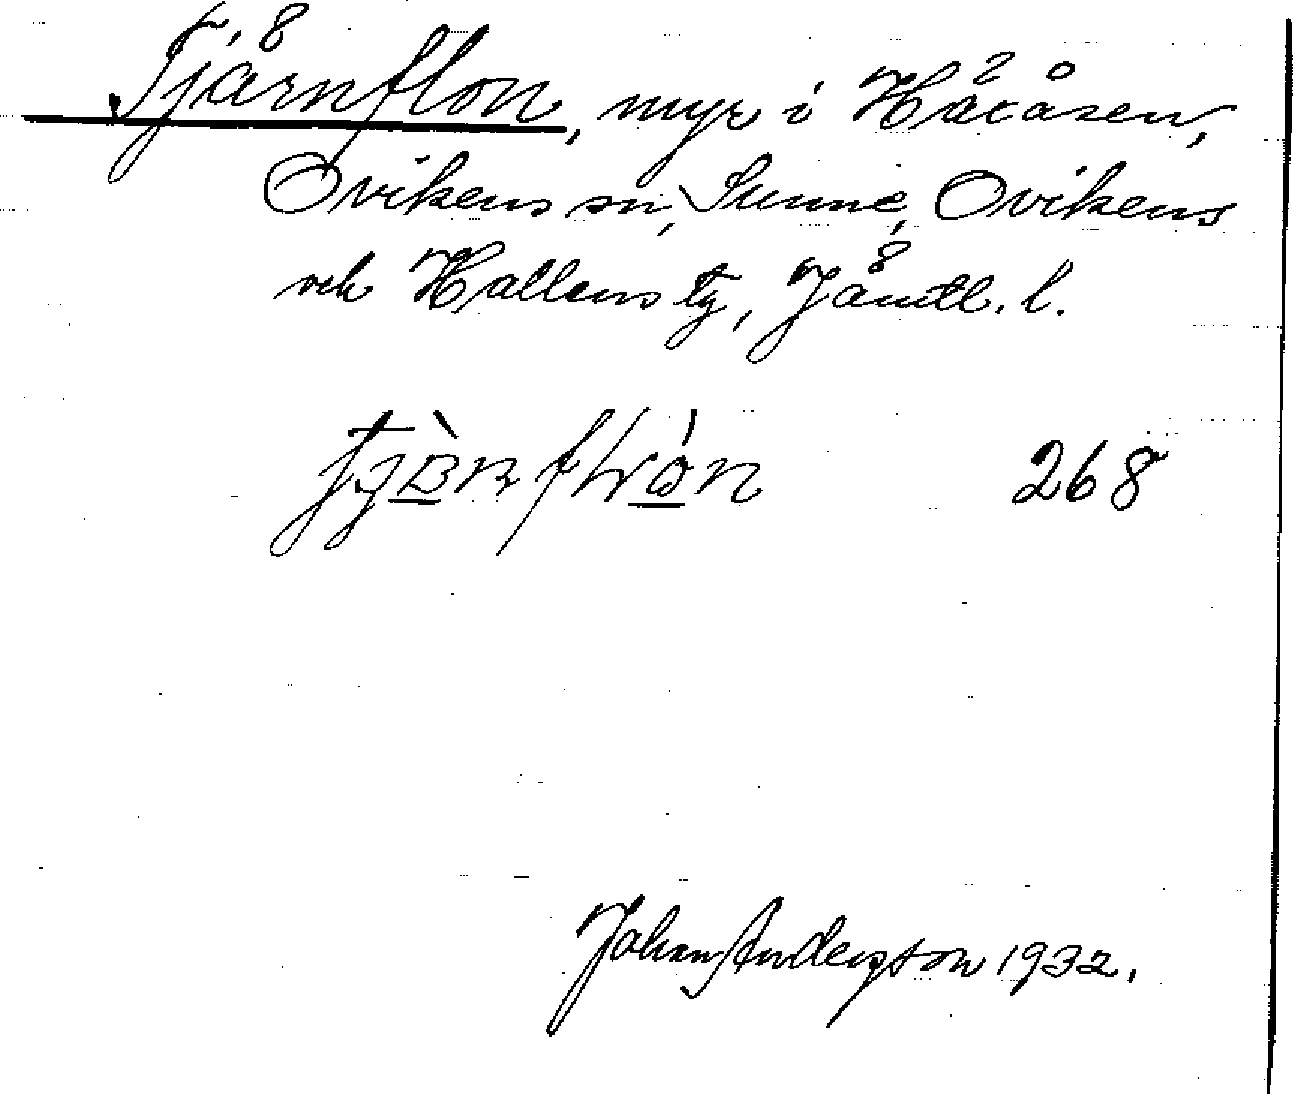 Tjärnflon, myr i Håkåsen,
Ovikens sn, Sunne, Ovikens
och Hallens tg, Jämtl. l.
268
Johan Anderson 1932.